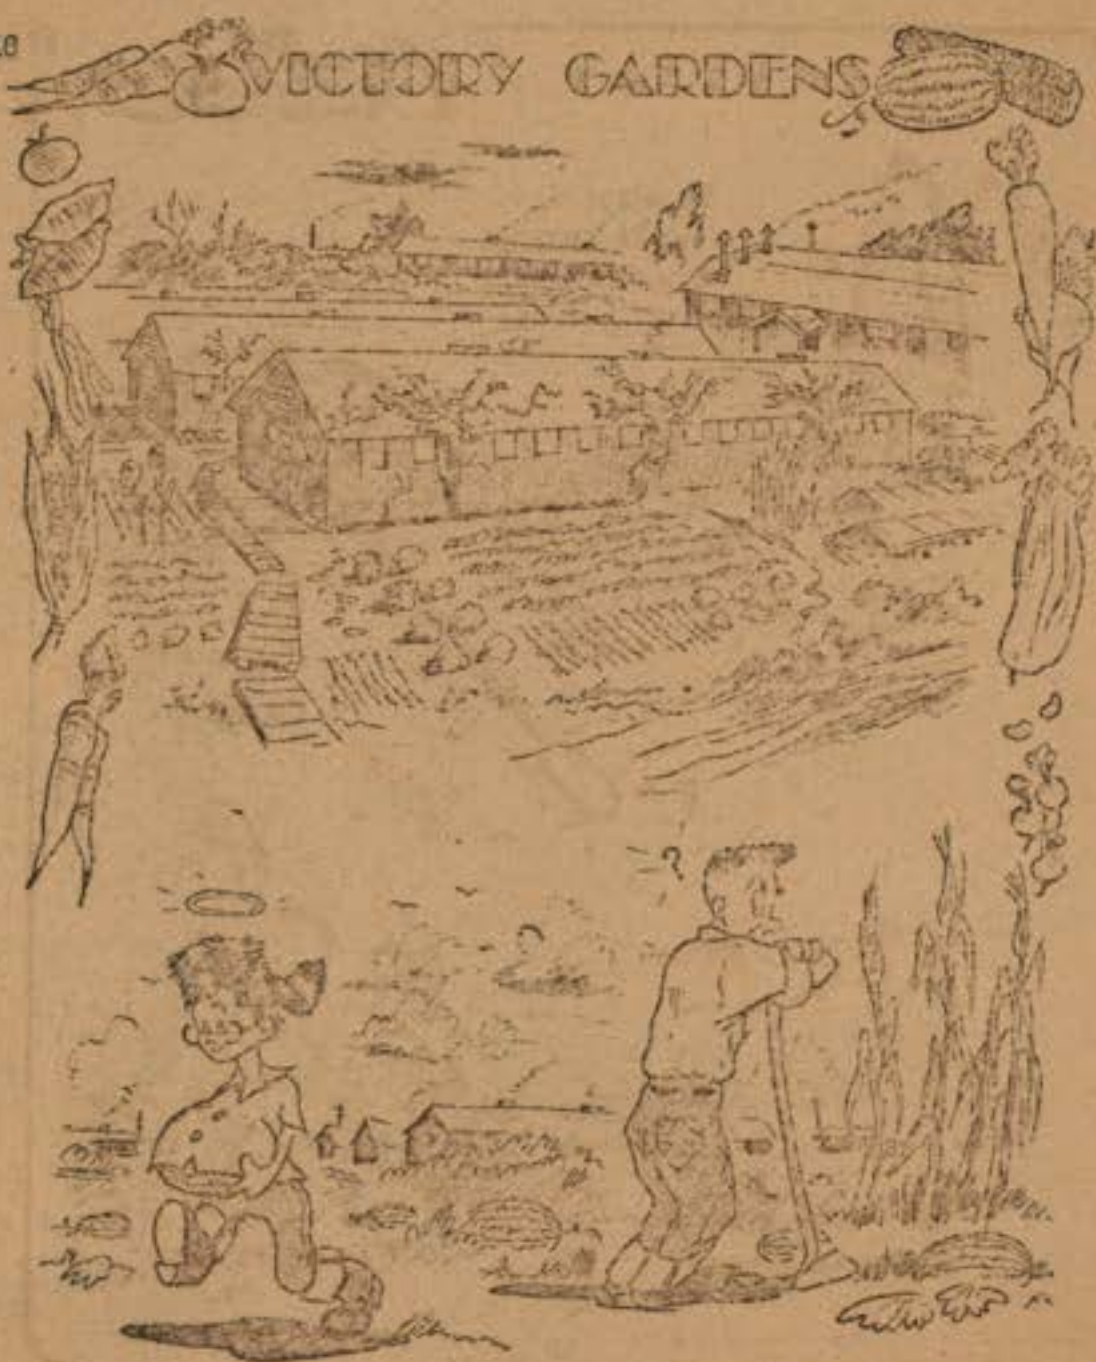 VICTORY GARDENS
?